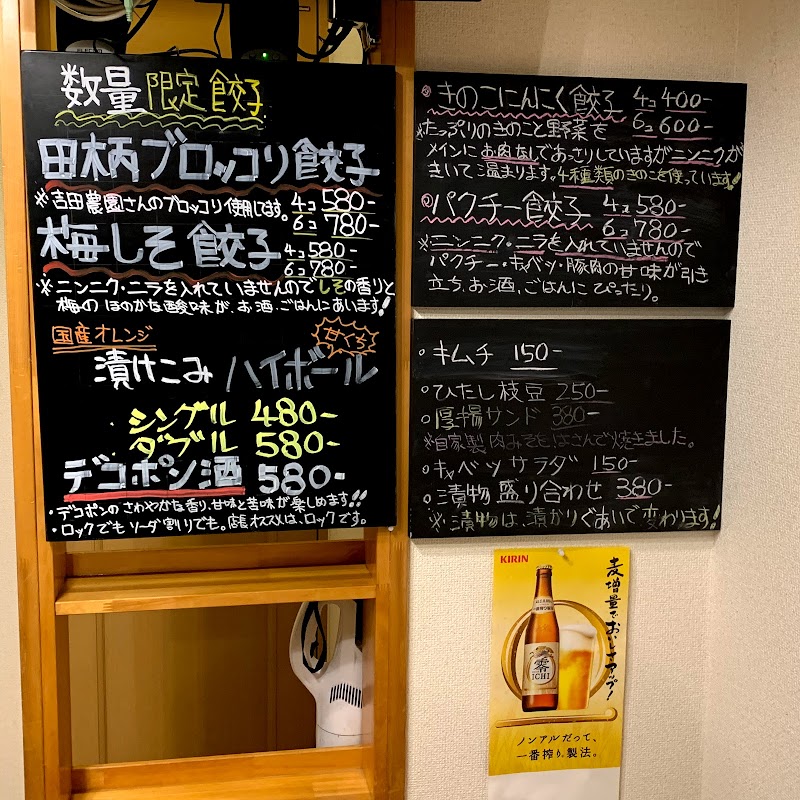 数量限定餃子
田柄ブロッコリ餃子
※吉田農園さんのブロッコリ使用してます。
4コ 580-
6コ 780-
梅しそ餃子
4コ 580-
6コ 780-
※ニンニク・ニラを入れていませんのでしその香りと
梅のほのかな酸味が、お酒、ごはんにあいます!
国産オレンジ
甘くち
漬けこみ ハイボール
シングル 480-
ダブル 580-
デコポン酒 580-
・デコポンのさわやかな香り、甘味と苦味が楽しめます!!
・ロックでもソーダ割りでも。店長オススメは、ロックです。
きのこにんにく餃子 4コ 400-
6コ 600-
※たっぷりのきのこと野菜を
メインにお肉なしであっさりしていますがニンニクが
きいて温まります。4種類のきのこを使っています!!
パクチー餃子 4コ 580-
6コ 780-
※ニンニク・ニラを入れていませんので
パクチー・キャベツ・豚肉の甘味が引き
立ち、お酒、ごはんにぴったり。
・キムチ 150-
・ひたし枝豆 250-
・厚揚サンド 380-
※自家製肉みそをはさんで焼きました。
・キャベツサラダ 150-
・漬物盛り合わせ 380-
※漬物は、漬かりぐあいで変わります!
KIRIN
麦増量でおいしさアップ!
零
ICHI
ノンアルだって、
一番搾り製法。